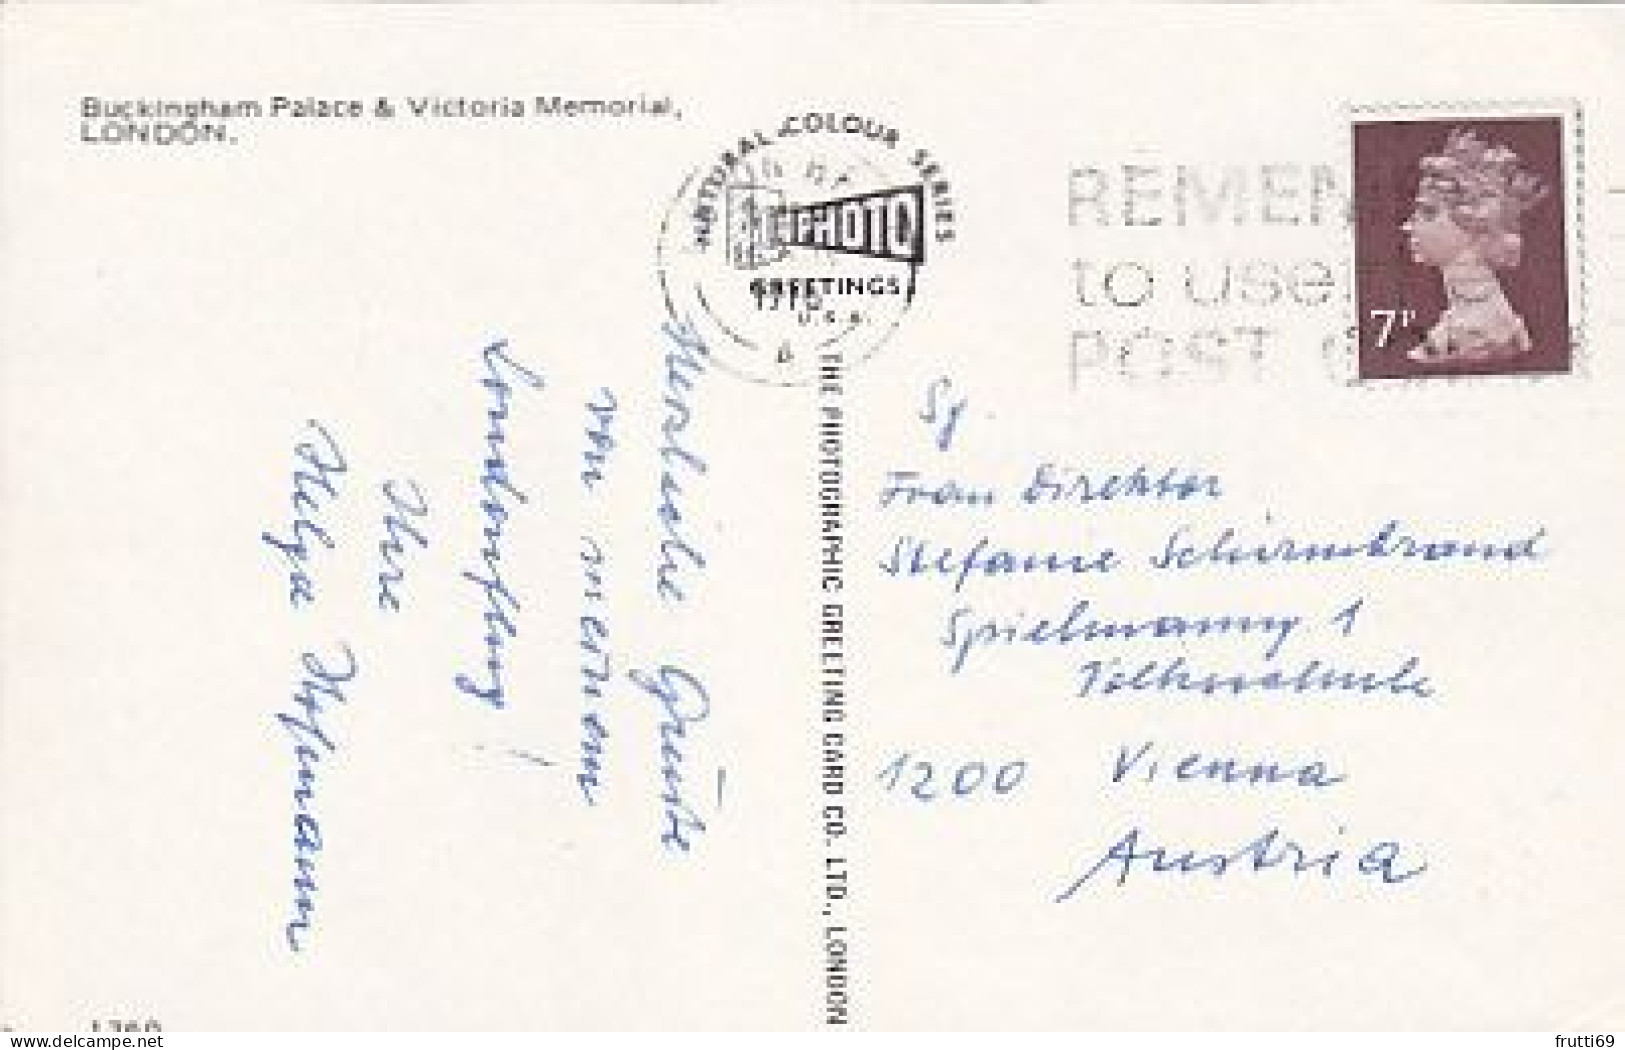 Buckingham Palace & Victoria Memorial,
LONDON.
NATURAL COLOUR SERIES
PHOTO
GREETINGS
REMEM
to use
POST
7P
THE PHOTOGRAPHIC GREETING CARD CO. LTD., LONDON
Herzliche Grüße
von meinem
Londonflug!
Ihre
Helga Hofmann
Sg.
Frau Direktor
Stefanie Schirmbrand
Spielmanng. 1
Volksschule
1200 Vienna
Austria
delcampe.net
frutti69